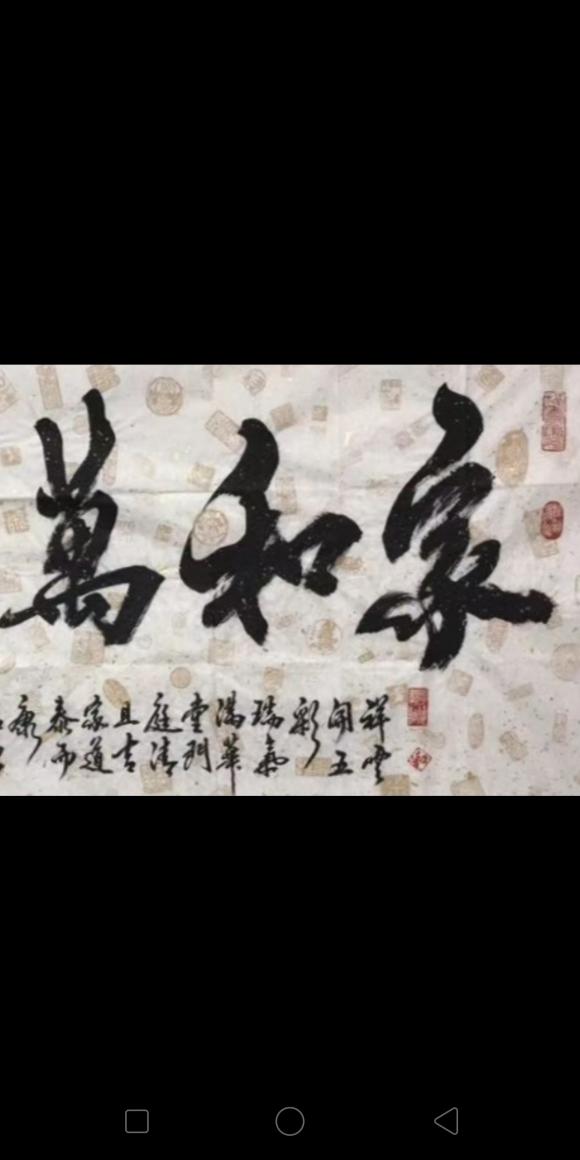 家和萬
祥雲
開五
彩
瑞氣
滿華
堂門
庭清
且吉
家道
泰而
康
和